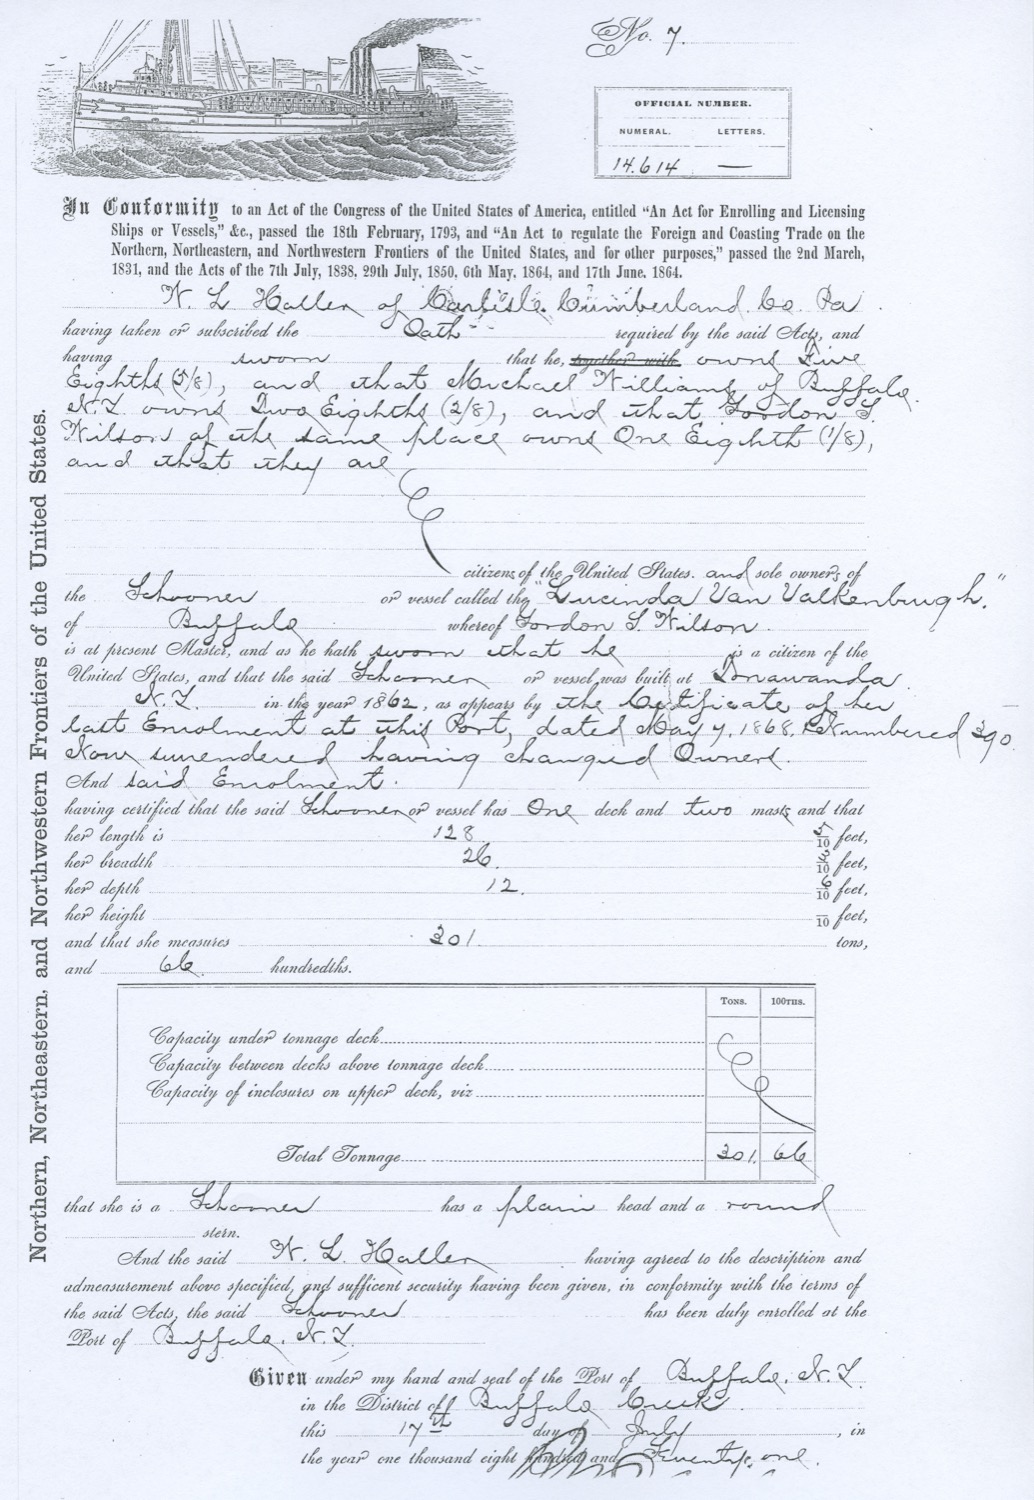 No. 7.
OFFICIAL NUMBER.
NUMERAL. LETTERS.
14.614 —
In Conformity to an Act of the Congress of the United States of America, entitled "An Act for Enrolling and Licensing
Ships or Vessels," &c., passed the 18th February, 1793, and "An Act to regulate the Foreign and Coasting Trade on the
Northern, Northeastern, and Northwestern Frontiers of the United States, and for other purposes," passed the 2nd March,
1831, and the Acts of the 7th July, 1838, 29th July, 1850, 6th May, 1864, and 17th June, 1864.
W. L. Haller of Carlisle. Cumberland. Co. Pa
having taken or subscribed the Oath required by the said Acts, and
having sworn that he, together with owns Five
Eighths (5/8), and that Michael Williams of Buffalo.
N.Y. owns Two Eighths (2/8), and that Gordon S.
Wilson of the same place owns One Eighth (1/8),
and that they are
citizens of the United States. and sole owners of
the Schooner or vessel called the "Lucinda Van Valkenburgh."
of Buffalo whereof Gordon S. Wilson
is at present Master, and as he hath sworn that he is a citizen of the
United States, and that the said Schooner or vessel was built at Tonawanda
N.Y. in the year 1862, as appears by the Certificate of her
last Enrolment at this Port, dated May 7, 1868, & Numbered 390
Now surrendered having changed Owners.
And said Enrolment.
having certified that the said Schooner or vessel has One deck and two masts and that
her length is 128 5/10 feet,
her breadth 26. /10 feet,
her depth 12. 6/10 feet,
her height /10 feet,
and that she measures 301 tons,
and 66 hundredths.
TONS. 100THS.
Capacity under tonnage deck
Capacity between decks above tonnage deck
Capacity of inclosures on upper deck, viz
Total Tonnage 301. 66
that she is a Schooner has a plain head and a round
stern.
And the said W. L. Haller having agreed to the description and
admeasurement above specified, and sufficent security having been given, in conformity with the terms of
the said Acts, the said Schooner has been duly enrolled at the
Port of Buffalo. N.Y.
Given under my hand and seal of the Port of Buffalo. N.Y.
in the District of Buffalo Creek
this 17th day of July, in
the year one thousand eight hundred and Seventy, one.
Northern, Northeastern, and Northwestern Frontiers of the United States.